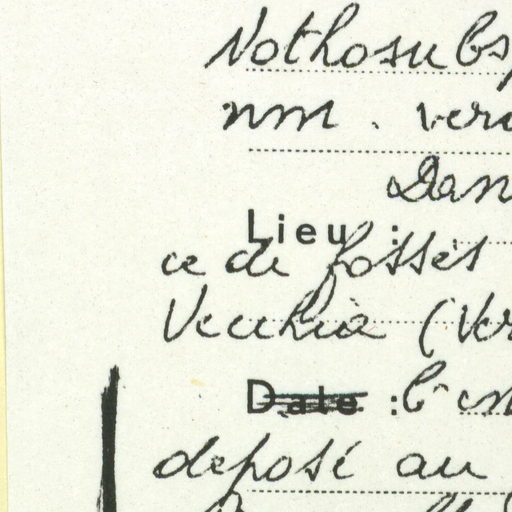 Nothosubsp
nm. vero
Dan
Lieu :
ce de fossés
Vecchia (Ver
Date :
déposé au